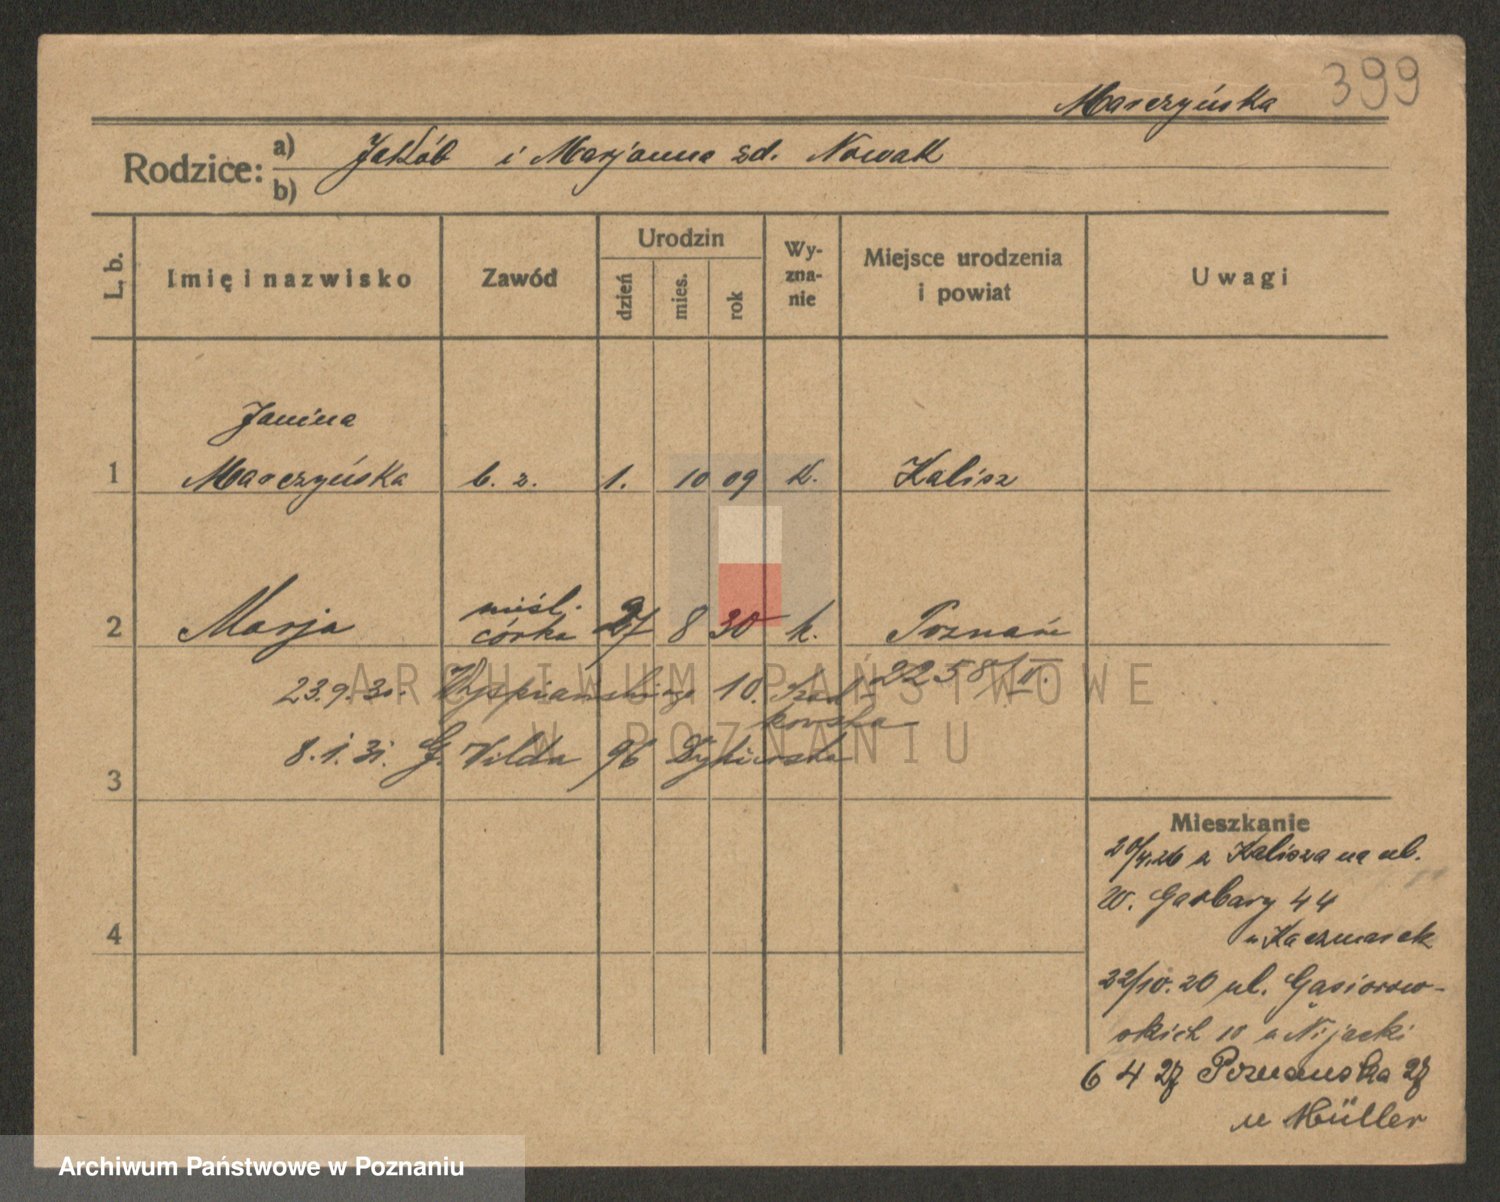 399
Marczyńska
Rodzice: a) Jakób i Marjanna zd. Nowak
b)
L. b. Imię i nazwisko Zawód Urodzin dzień mies. rok Wy-zna-nie Miejsce urodzenia i powiat Uwagi
Janina
1 Marczyńska b. z. 1. 10 09 k. Kalisz
nieśl.
2 Marja córka 27 8 30 k. Poznań
23.9.30. Wyspiańskiego 10. 2258/IV.
kowska
8.1.31. G. Wilda 96
3
Mieszkanie
20/4.26 z Kalisza na ul.
W. Garbary 44
4
u Kaczmarek
22/10.26 ul. Gąsiorow-
skich 10 u Nijacki
6 4 27 Poznańska 27
u Müller
ARCHIWUM PAŃSTWOWE
W POZNANIU
Archiwum Państwowe w Poznaniu